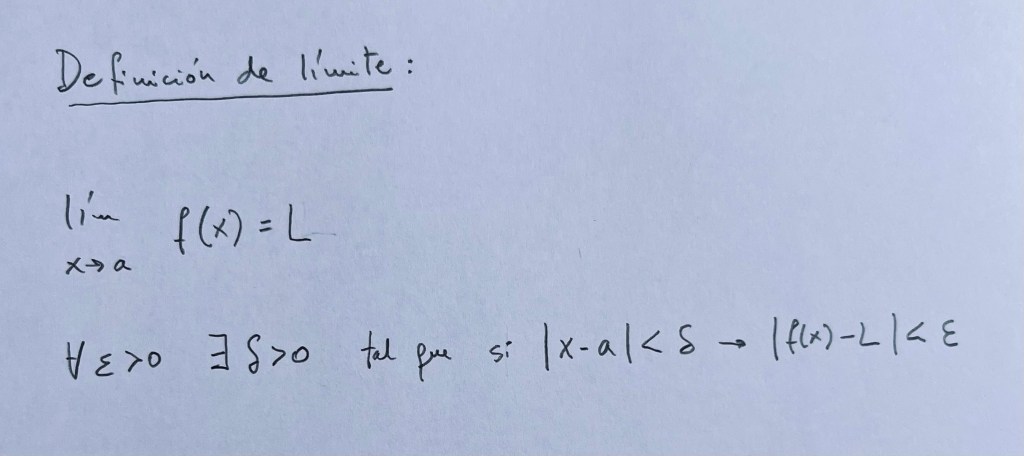 Definición de límite:
lím f(x) = L
x→a
∀ ε>0 ∃ δ>0 tal que si |x-a|< δ → |f(x)-L|< ε